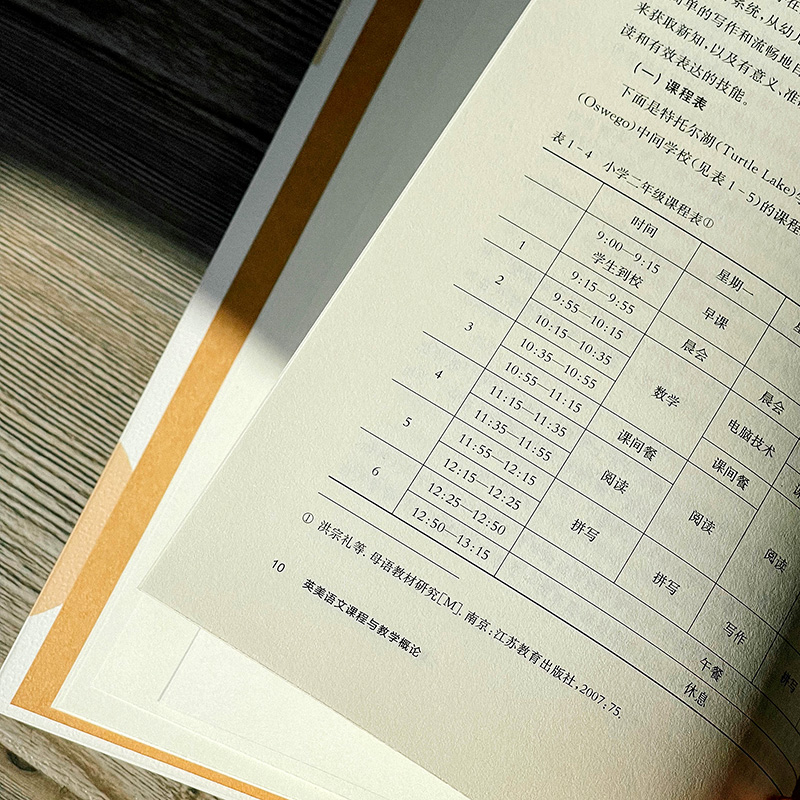 系统,从幼儿
简单的写作和流畅地
来获取新知,以及有意义、准
读和有效表达的技能。
(一) 课程表
下面是特托尔湖(Turtle Lake)
(Oswego)中间学校(见表1-5)的课程
表1-4 小学二年级课程表①
时间 星期一
9:00—9:15 学生到校 早课
1 9:15—9:55 晨会 晨会
9:55—10:15 数学 电脑技术
2 10:15—10:35
10:35—10:55 课间餐 课间餐
3 10:55—11:15 阅读 阅读 阅读
11:15—11:35
4 11:35—11:55 拼写 拼写
11:55—12:15 写作 拼写
5 12:15—12:25 午餐
12:25—12:50 休息
6 12:50—13:15
① 洪宗礼等. 母语教材研究[M]. 南京:江苏教育出版社,2007:75.
10 英美语文课程与教学概论